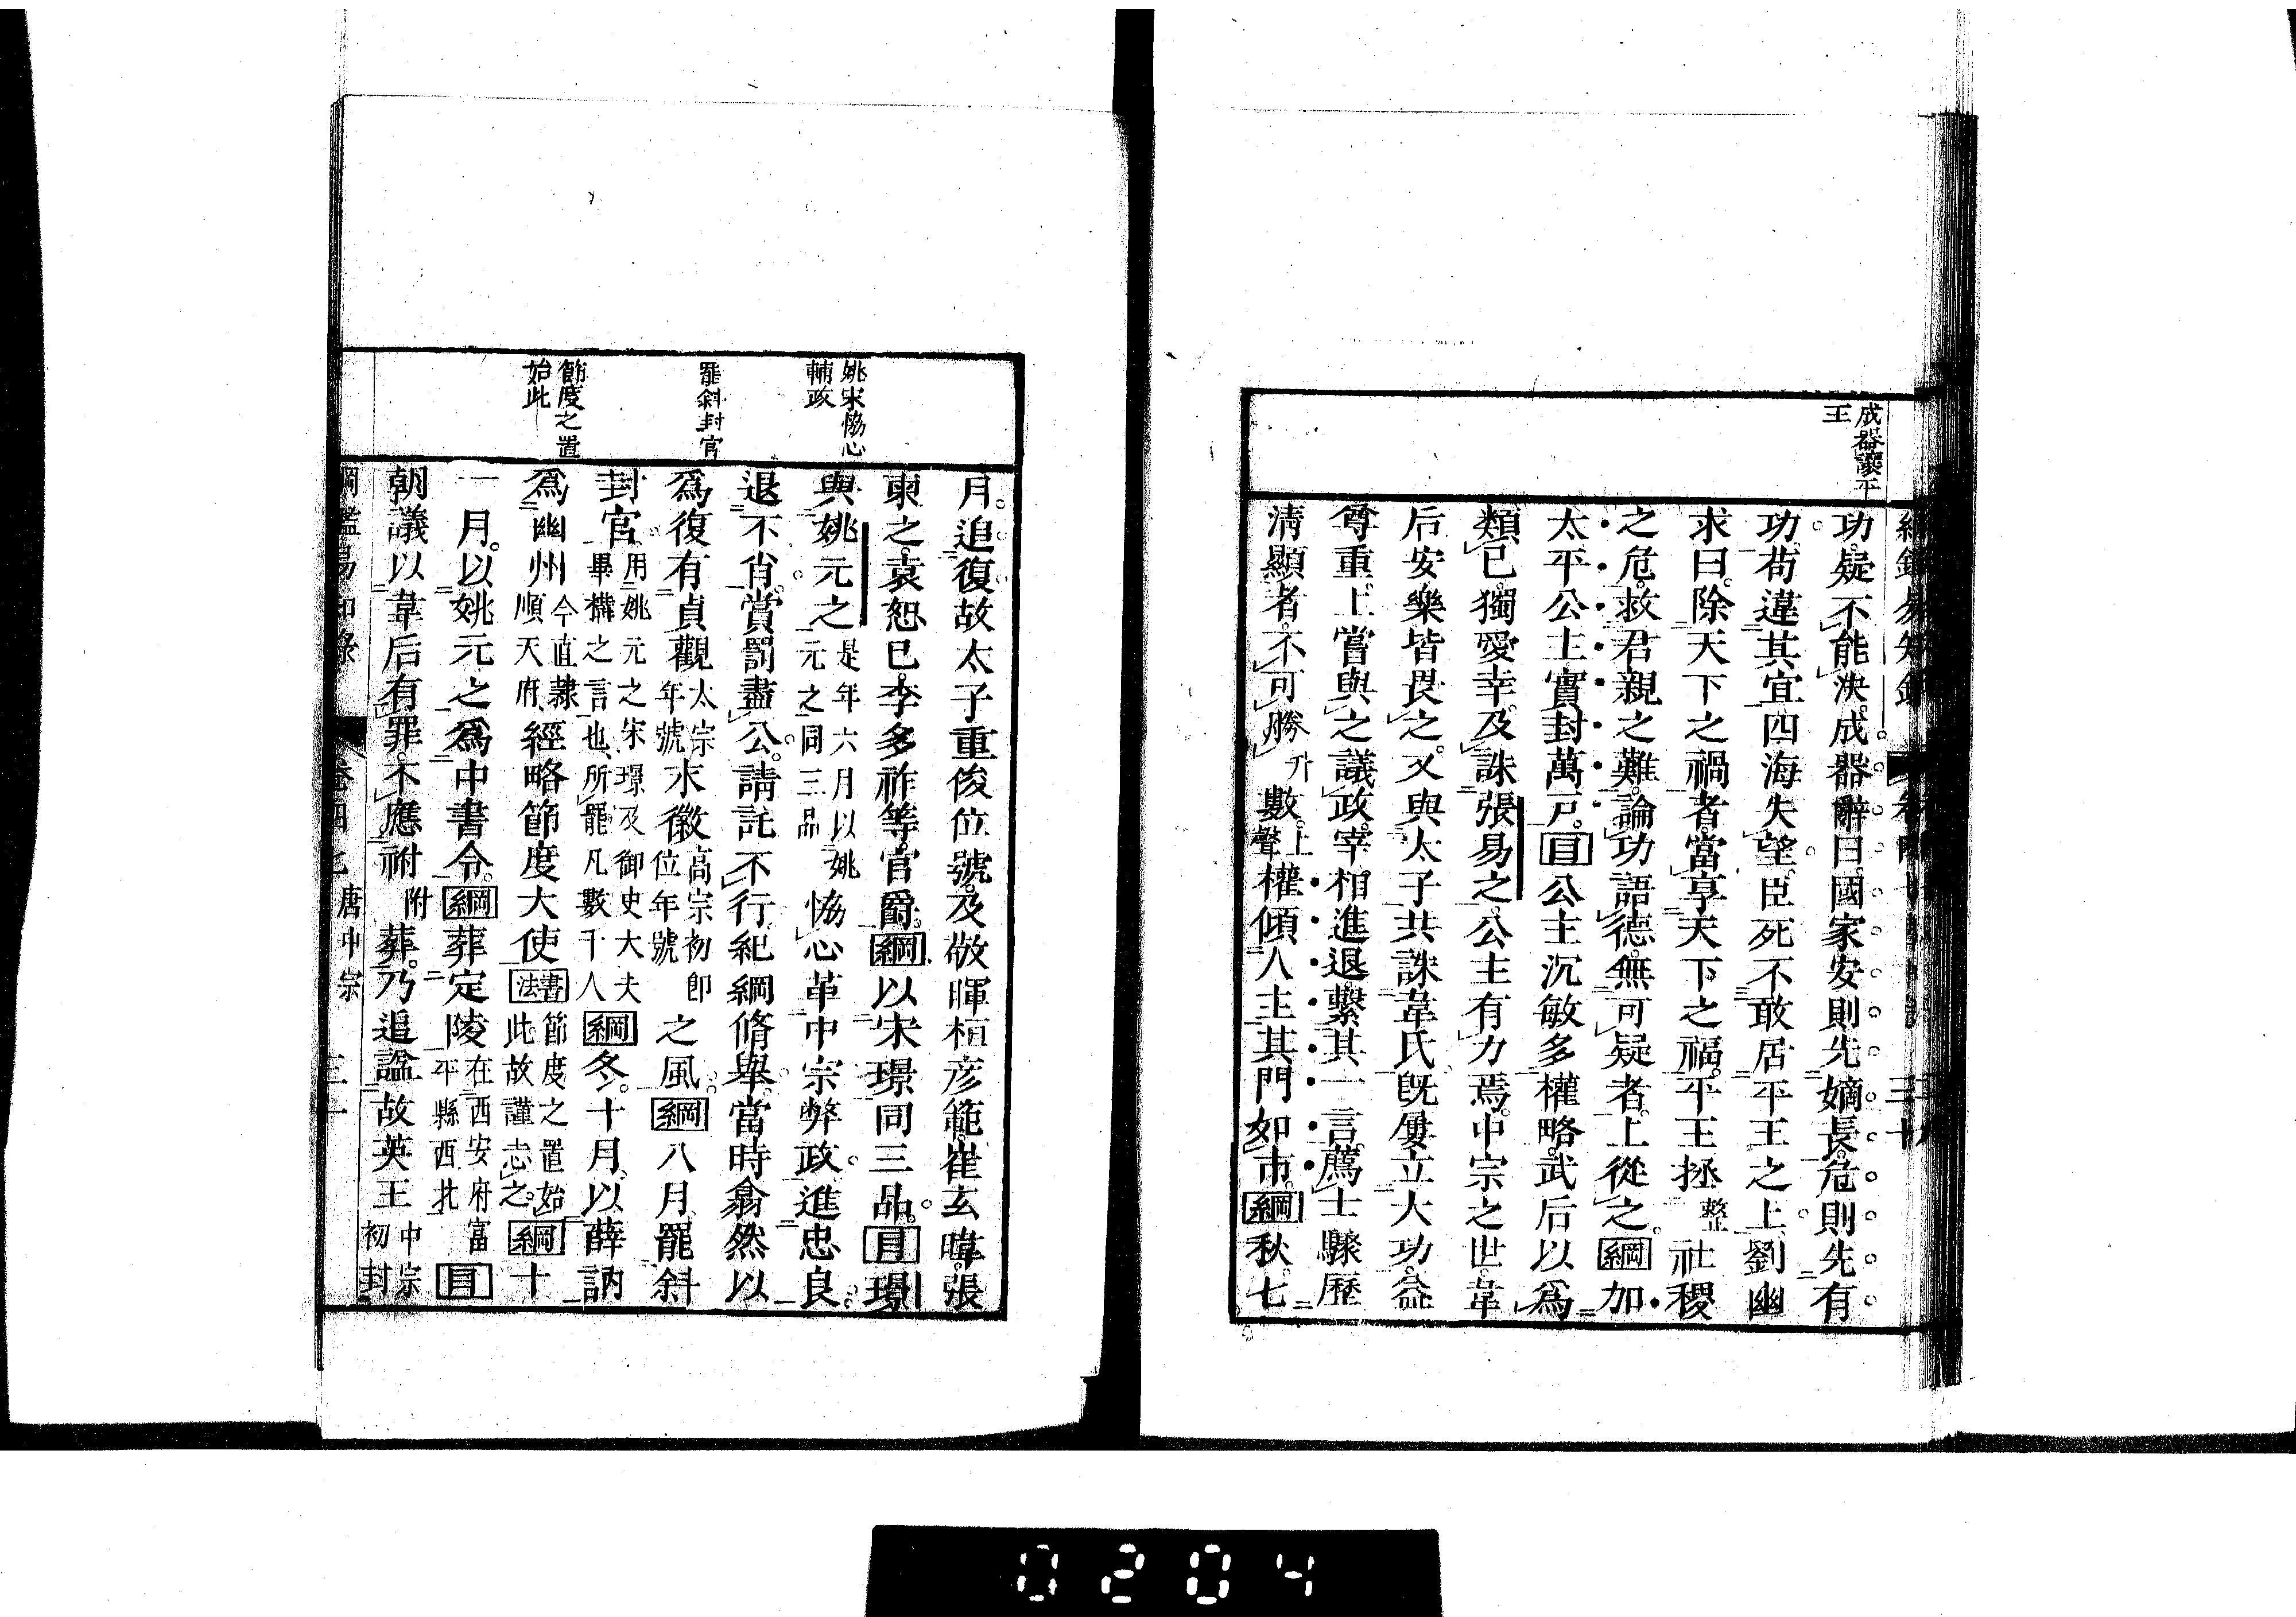 成器讓平
王
功疑不能決成器辭曰國家安則先嫡長危則先有
功苟違其宜四海失望臣死不敢居平王之上劉幽
求曰除天下之禍者當享天下之福平王拯整社稷
之危救君親之難論功語德無可疑者上從之綱加
太平公主實封萬戸目公主沉敏多權略武后以爲
類已獨愛幸及誅張易之公主有力焉中宗之世韋
后安樂皆畏之又與太子共誅韋氏旣屢立大功益
尊重上嘗與之議政宰相進退繫其一言薦士驟歷
淸顯者不可勝升數上聲權傾人主其門如市綱秋七
姚宋恊心
輔政
罷斜封官
節度之置
始此
月追復故太子重俊位號及敬暉桓彦範崔玄暐張
柬之袁恕已李多祚等官爵綱以宋璟同三品目璟
與姚元之是年六月以姚元之同三品恊心革中宗弊政進忠良
退不肖賞罰盡公請託不行紀綱脩舉當時翕然以
爲復有貞觀太宗年號永徽高宗初即位年號之風綱八月罷斜
封官用姚元之宋璟及御史大夫畢構之言也所罷凡數千人綱冬十月以薛訥
爲幽州今直隸順天府經略節度大使書法節度之置始此故謹志之綱十
一月以姚元之爲中書令綱葬定陵在西安府富平縣西北目
朝議以韋后有罪不應祔附葬乃追諡故英王中宗初封
綱鑑易知錄 卷四七 唐中宗 三十